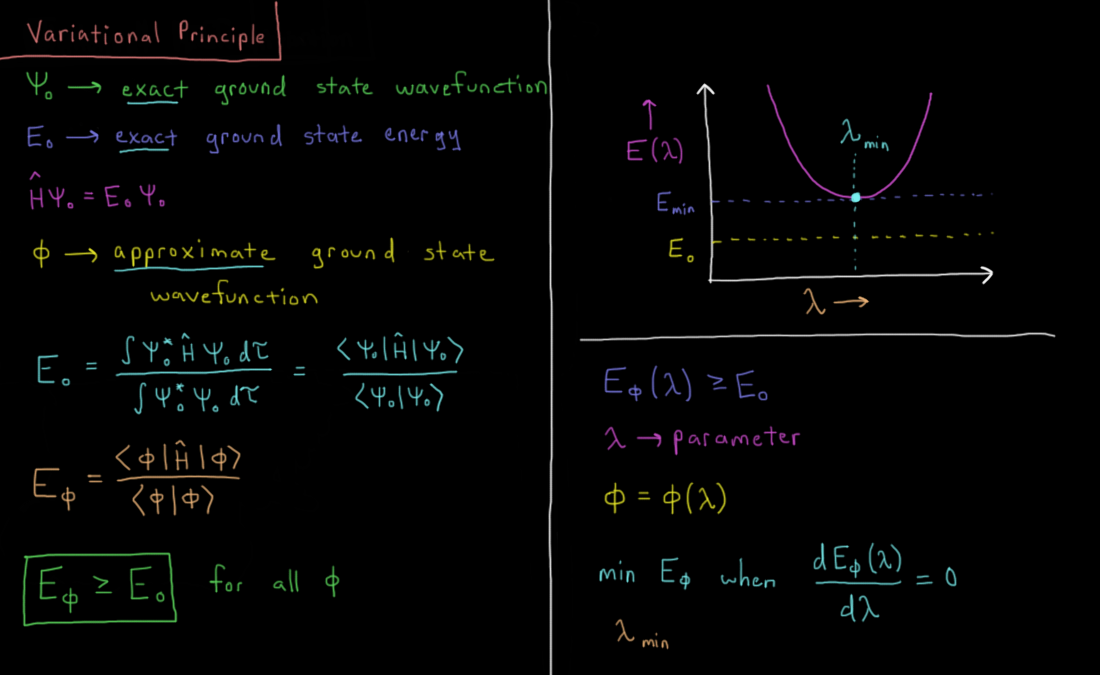 Variational Principle
Ψ₀ → exact ground state wavefunction
E₀ → exact ground state energy
ĤΨ₀ = E₀Ψ₀
ϕ → approximate ground state
wavefunction
E₀ = ∫Ψ₀*ĤΨ₀dτ / ∫Ψ₀*Ψ₀dτ = ⟨Ψ₀|Ĥ|Ψ₀⟩ / ⟨Ψ₀|Ψ₀⟩
E_ϕ = ⟨ϕ|Ĥ|ϕ⟩ / ⟨ϕ|ϕ⟩
E_ϕ ≥ E₀ for all ϕ
↑
E(λ)
λ min
E min
E₀
λ →
E_ϕ(λ) ≥ E₀
λ → parameter
ϕ = ϕ(λ)
min E_ϕ when dE_ϕ(λ) / dλ = 0
λ min